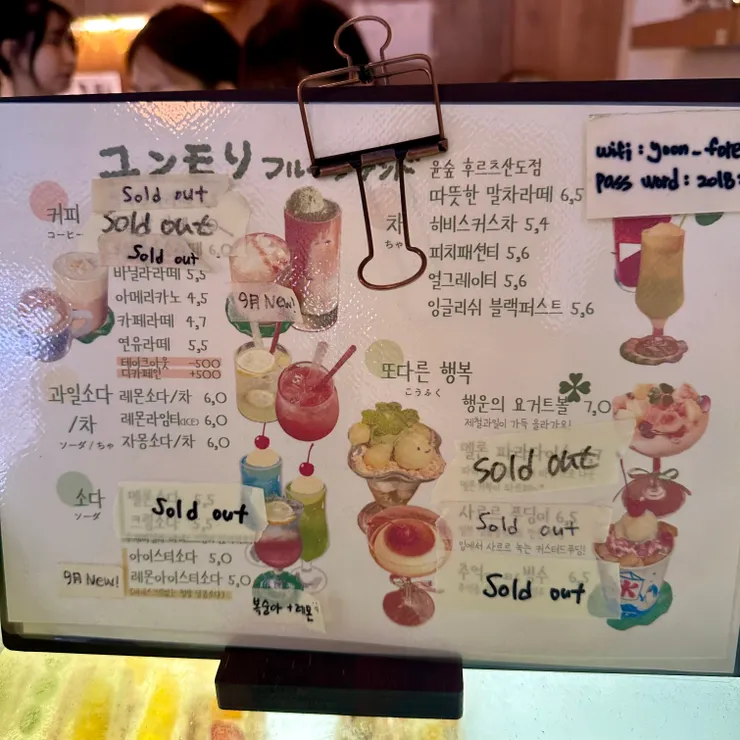 ユンモリ
Sold out
Sold out
Sold out
커피
コーヒー
6,0
바닐라라떼 5,5
아메리카노 4,5
카페라떼 4,7
연유라떼 5,5
테이크아웃 -500
디카페인 +500
9月 New!
과일소다
/차
ソーダ/ちゃ
레몬소다/차 6,0
레몬라임티(ICE) 6,0
자몽소다/차 6,0
소다
ソーダ
Sold out
아이스티소다 5,0
레몬아이스티소다 5,0
9月 New!
복숭아+레몬
윤숲 후르츠산도점
차
ちゃ
따뜻한 말차라떼 6,5
히비스커스차 5,4
피치패션티 5,6
얼그레이티 5,6
잉글리쉬 블랙퍼스트 5,6
wifi : yoon_fore
pass word : 2018
또다른 행복
こうふく
행운의 요거트볼 7,0
제철과일이 가득 올라가요!
Sold out
사르르 푸딩 6,5
Sold out
입에서 사르르 녹는 커스터드푸딩!
추억 빙수 6,5
Sold out